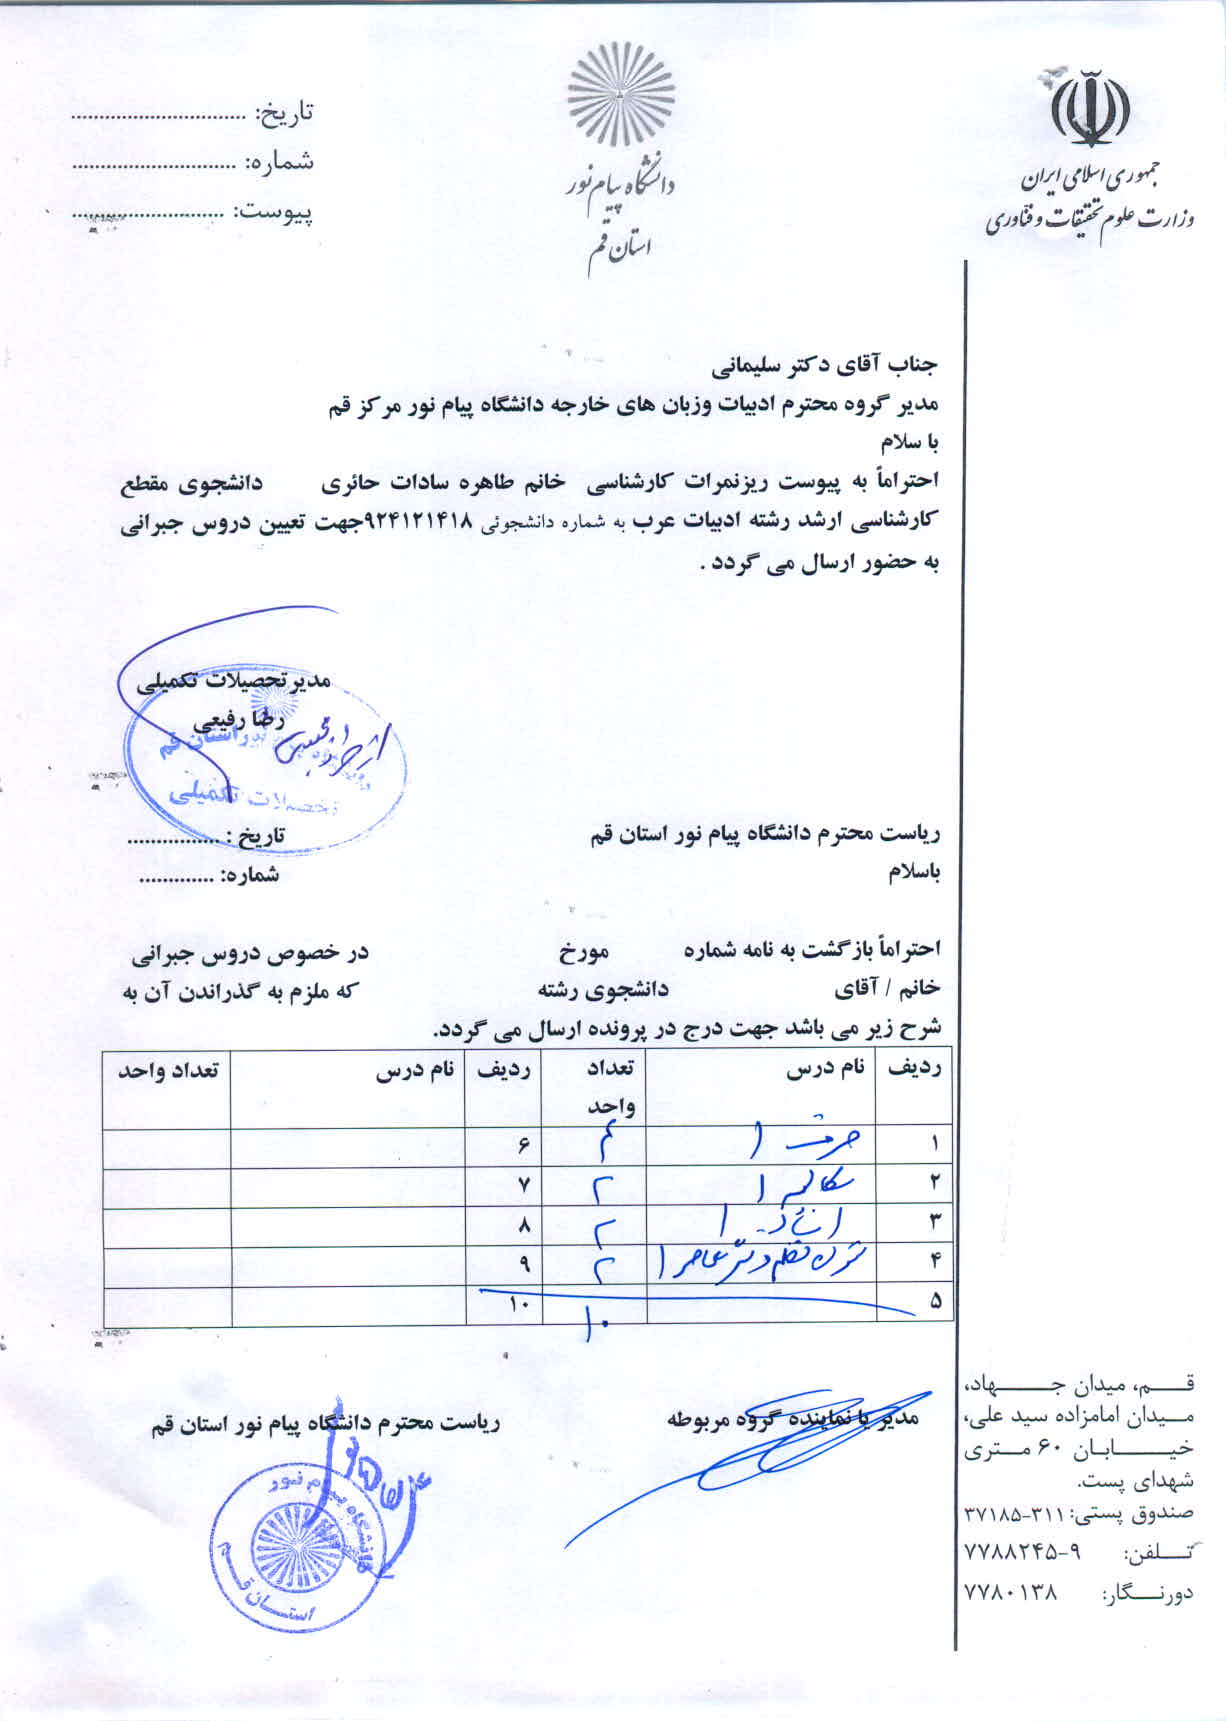 جمهوری اسلامی ایران
وزارت علوم تحقیقات و فناوری
دانشگاه پیام نور
استان قم
تاریخ: ..............................
شماره: ..............................
پیوست: ..............................
جناب آقای دکتر سلیمانی
مدیر گروه محترم ادبیات وزبان های خارجه دانشگاه پیام نور مرکز قم
با سلام
احتراماً به پیوست ریزنمرات کارشناسی خانم طاهره سادات حائری دانشجوی مقطع
کارشناسی ارشد رشته ادبیات عرب به شماره دانشجوئی ۹۲۴۱۲۱۴۱۸جهت تعیین دروس جبرانی
به حضور ارسال می گردد .
مدیرتحصیلات تکمیلی
رضا رفیعی
استان قم
تحصیلات تکمیلی
ریاست محترم دانشگاه پیام نور استان قم
تاریخ : ................
باسلام
شماره: .............
احتراماً بازگشت به نامه شماره مورخ در خصوص دروس جبرانی
خانم / آقای دانشجوی رشته که ملزم به گذراندن آن به
شرح زیر می باشد جهت درج در پرونده ارسال می گردد.
ردیف نام درس تعداد واحد ردیف نام درس تعداد واحد
۱ صرف ۱ ۴ ۶
۲ مکالمه ۱ ۲ ۷
۳ ۱ ۲ ۸
۴ متون نظم و نثر معاصر ۱ ۲ ۹
۵ ۱۰ ۱۰
مدیر یا نماینده گروه مربوطه
ریاست محترم دانشگاه پیام نور استان قم
دانشگاه پیام نور
استان قم
قم، میدان جهاد،
میدان امامزاده سید علی،
خیابان ۶۰ متری
شهدای پست.
صندوق پستی: ۳۱۱-۳۷۱۸۵
تلفن: ۹-۷۷۸۸۲۴۵
دورنگار: ۷۷۸۰۱۳۸